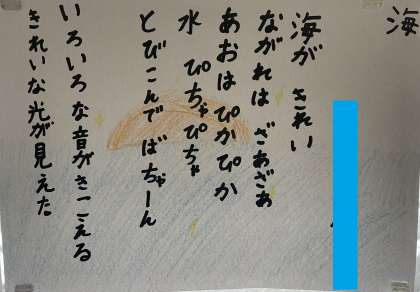 海
海が きれい
ながれは ざあざあ
あおはぴかぴか
水 ぴちゃぴちゃ
とびこんでばちゃーん
いろいろな音がきこえる
きれいな光が見えた